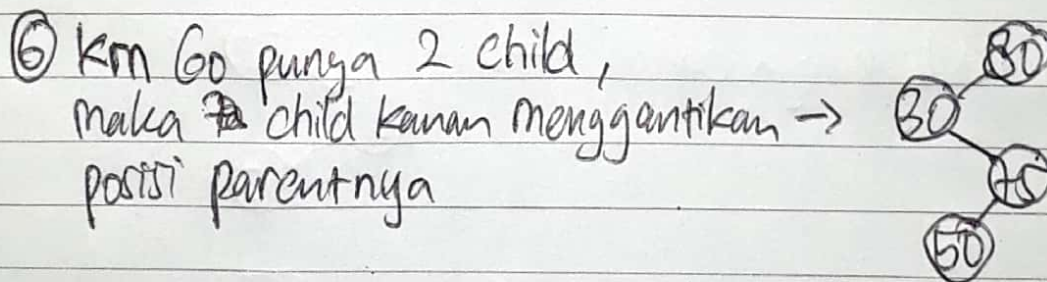 ⑥ krn 60 punya 2 child,
maka child kanan menggantikan →
posisi parentnya
80
30
75
50